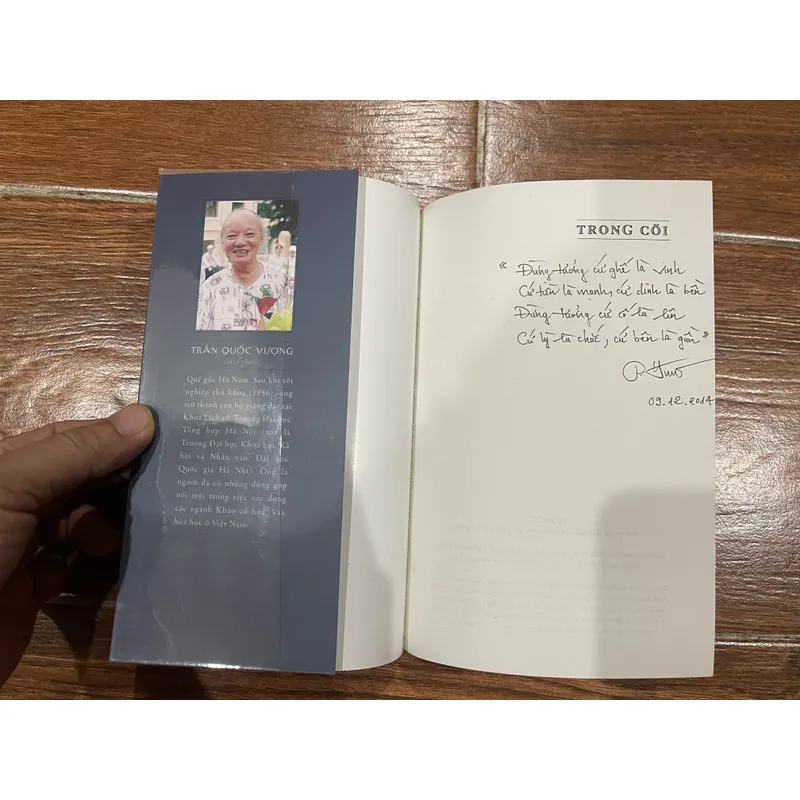 TRẦN QUỐC VƯỢNG
Quê gốc Hà Nam. Sau khi tốt
nghiệp thủ khoa (1956), ông
trở thành cán bộ giảng dạy tại
Khoa Lịch sử, Trường Đại học
Tổng hợp Hà Nội (nay là
Trường Đại học Khoa học Xã
hội và Nhân văn, Đại học
Quốc gia Hà Nội). Ông là
người đã có những đóng góp
nổi trội trong việc xây dựng
các ngành Khảo cổ học, Văn
hóa học ở Việt Nam.
TRONG CÕI
“Đừng tưởng cứ ghế là vinh
Cứ tiền là mạnh, cứ dinh là bền
Đừng tưởng cứ cố là lên
Cứ lỳ là chắc, cứ bên là gần”
09.12.2014